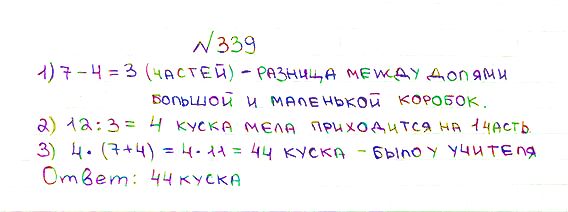 №339
1) 7 - 4 = 3 (ЧАСТЕЙ) - РАЗНИЦА МЕЖДУ ДОЛЯМИ
БОЛЬШОЙ И МАЛЕНЬКОЙ КОРОБОК.
2) 12 : 3 = 4 КУСКА МЕЛА ПРИХОДИТСЯ НА 1 ЧАСТЬ
3) 4 · (7+4) = 4 · 11 = 44 КУСКА - БЫЛО У УЧИТЕЛЯ
Ответ: 44 КУСКА